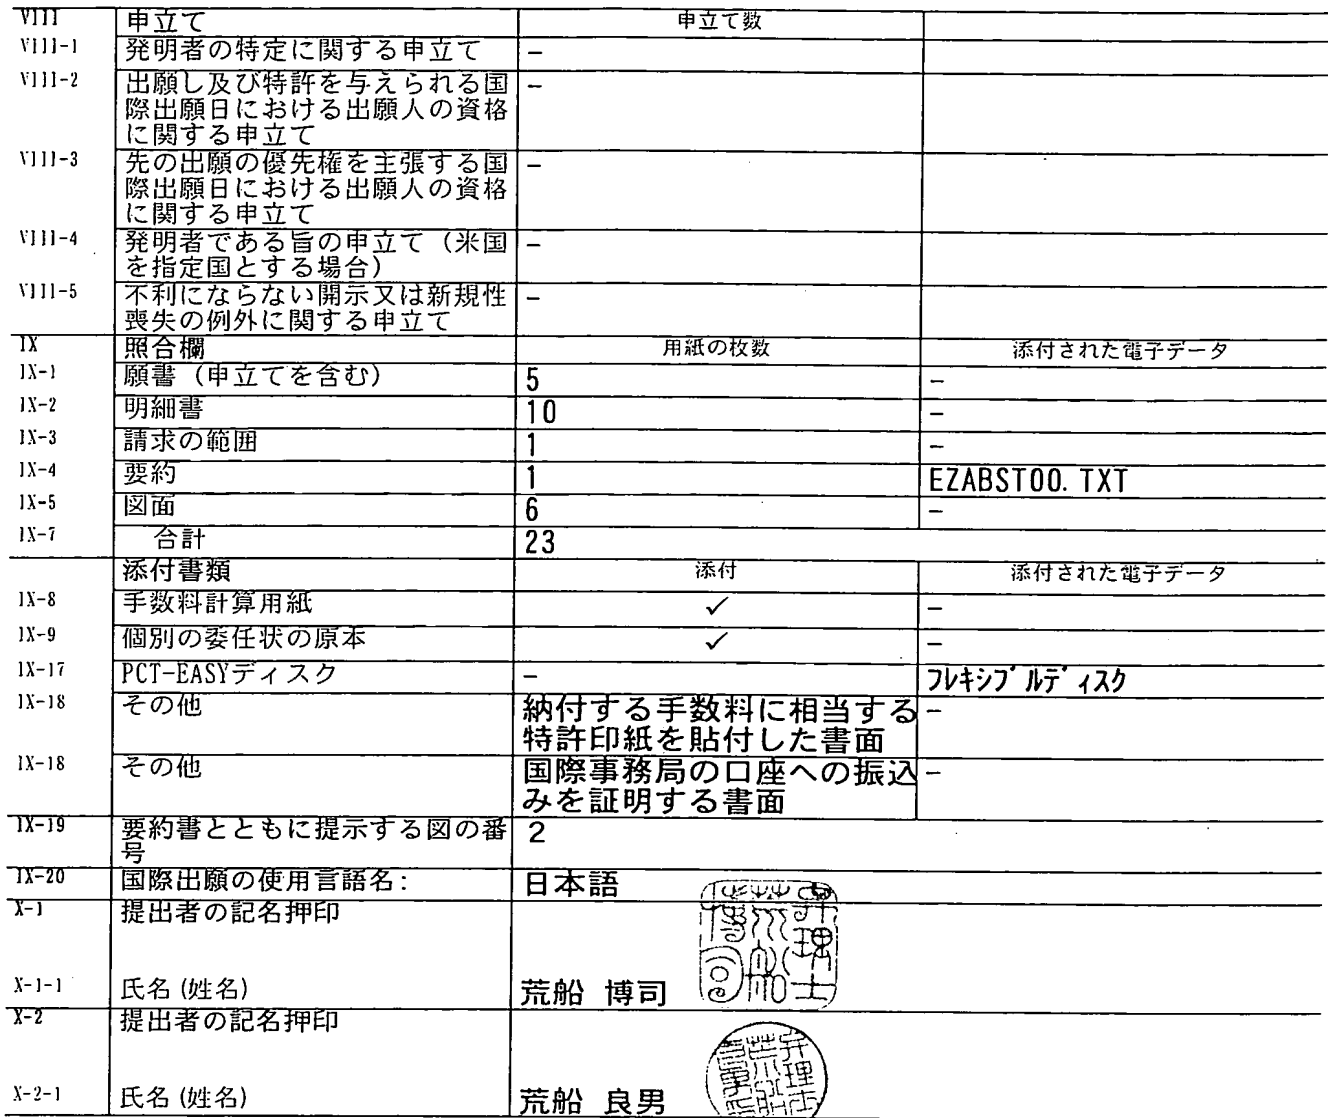 VIII 申立て 申立て数
VIII-1 発明者の特定に関する申立て –
VIII-2 出願し及び特許を与えられる国 –
際出願日における出願人の資格
に関する申立て
VIII-3 先の出願の優先権を主張する国 –
際出願日における出願人の資格
に関する申立て
VIII-4 発明者である旨の申立て（米国 –
を指定国とする場合）
VIII-5 不利にならない開示又は新規性 –
喪失の例外に関する申立て
IX 照合欄 用紙の枚数 添付された電子データ
IX-1 願書（申立てを含む） 5 –
IX-2 明細書 10 –
IX-3 請求の範囲 1 –
IX-4 要約 1 EZABST00.TXT
IX-5 図面 6 –
IX-7 合計 23
添付書類 添付 添付された電子データ
IX-8 手数料計算用紙 ✓ –
IX-9 個別の委任状の原本 ✓ –
IX-17 PCT-EASYディスク – フレキシブルディスク
IX-18 その他 納付する手数料に相当する –
特許印紙を貼付した書面
IX-18 その他 国際事務局の口座への振込 –
みを証明する書面
IX-19 要約書とともに提示する図の番 2
号
IX-20 国際出願の使用言語名: 日本語
X-1 提出者の記名押印
X-1-1 氏名(姓名) 荒船 博司
弁理士
荒船
博司
X-2 提出者の記名押印
X-2-1 氏名(姓名) 荒船 良男